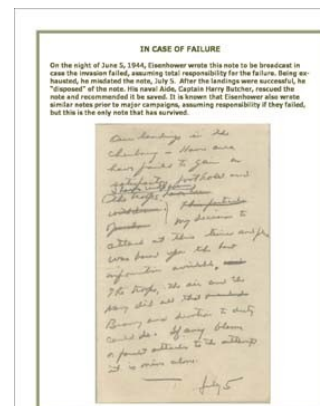 IN CASE OF FAILURE
On the night of June 5, 1944, Eisenhower wrote this note to be broadcast in
case the invasion failed, assuming total responsibility for the failure. Being ex-
hausted, he misdated the note, July 5. After the landings were successful, he
"disposed" of the note. His naval Aide, Captain Harry Butcher, rescued the
note and recommended it be saved. It is known that Eisenhower also wrote
similar notes prior to major campaigns, assuming responsibility if they failed,
but this is the only note that has survived.
Our landings in the
Cherbourg - Havre area
have failed to gain a
satisfactory foothold and
the troops
My decision to
attack at this time and place
was based upon the best
information available,
The troops, the air and the
Navy did all that
Bravery and devotion to duty
could do. If any blame
or fault attaches to the attempt
it is mine alone.
July 5